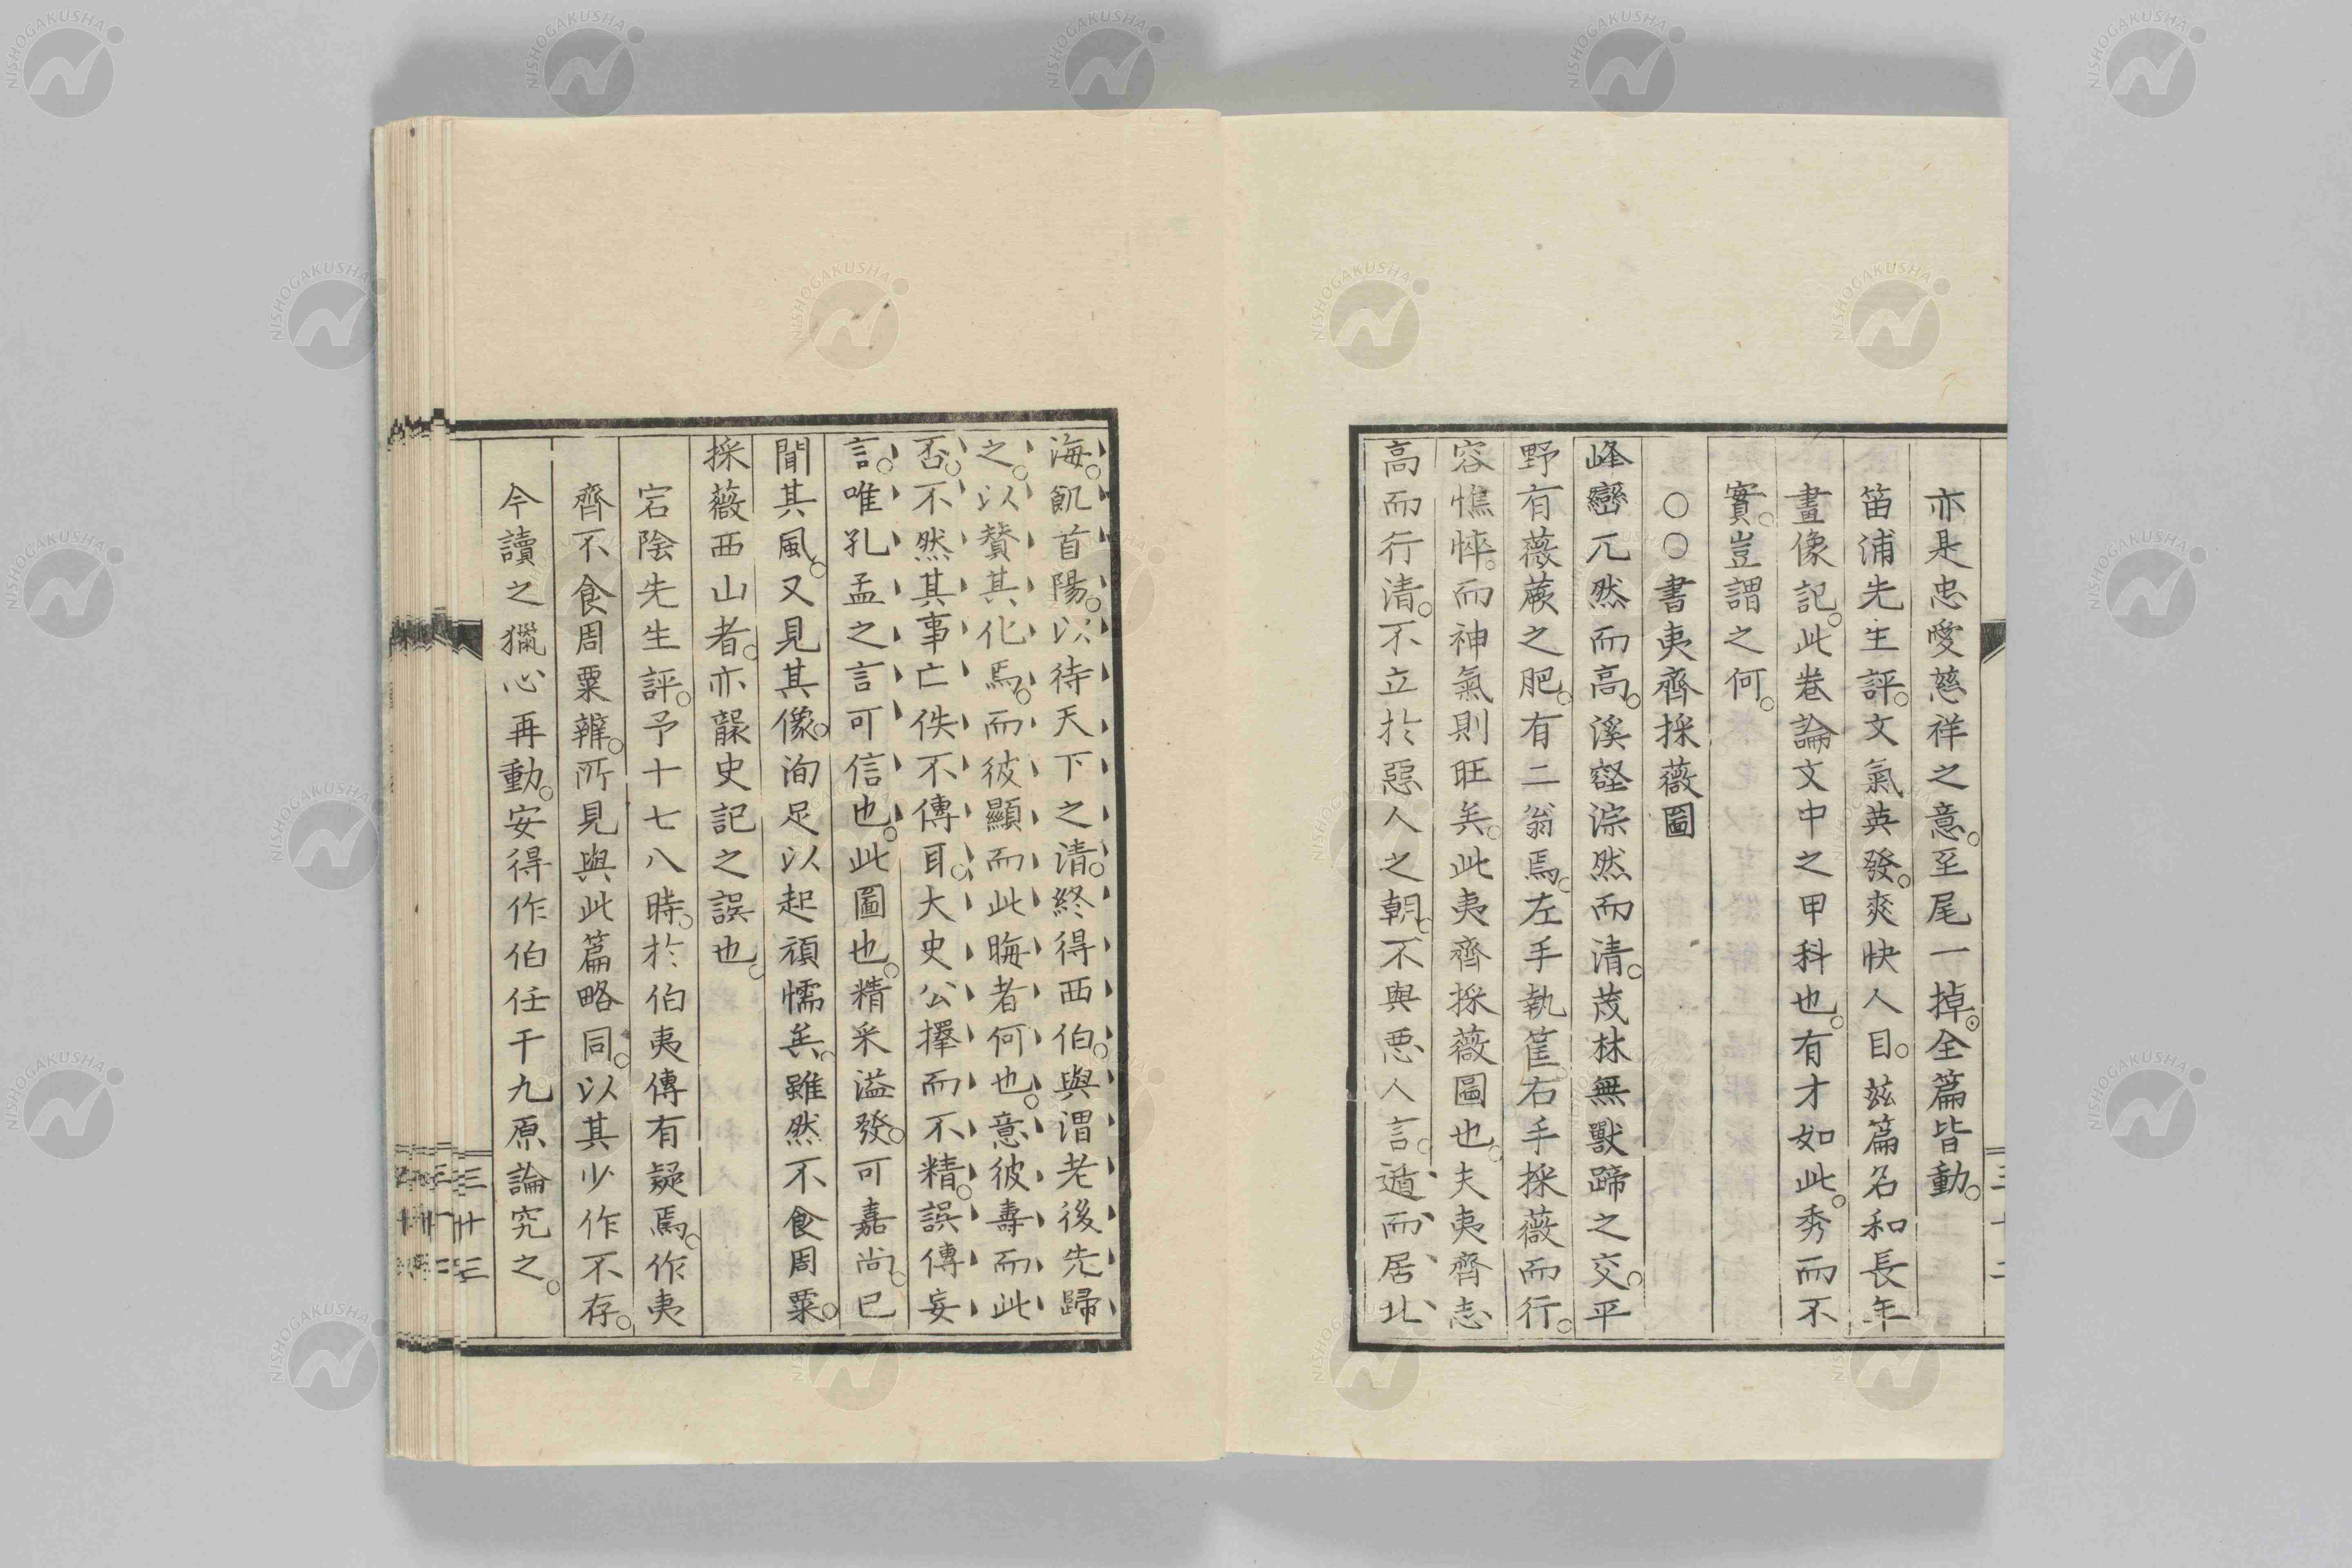 亦是忠愛慈祥之意。至尾一掉。全篇皆動。
笛浦先生評。文氣英發。爽快人目。茲篇名和長年
畫像記。此巻論文中之甲科也。有才如此。秀而不
實。豈謂之何。
〇〇書夷齊採薇圖
峰巒兀然而高。溪壑淙然而清。茂林無獸蹄之交。平
野有薇蕨之肥。有二翁焉。左手執筐。右手採薇而行。
容憔悴。而神氣則旺矣。此夷齊採薇圖也。夫夷齊志
高而行清。不立於惡人之朝。不與惡人言。遁而居北
海。飢首陽。以待天下之清。終得西伯。與渭老後先歸
之。以賛其化焉。而彼顯而此晦者何也。意彼壽而此
否。不然其事亡佚不傳耳。大史公擇而不精。誤傳妄
言。唯孔孟之言可信也。此圖也。精采溢發。可嘉尚已
聞其風。又見其像。洵足以起頑懦矣。雖然不食周粟。
採薇西山者。亦襲史記之誤也。
宕陰先生評。予十七八時。於伯夷傳有疑焉。作夷
齊不食周粟辨。所見與此篇略同。以其少作不存。
今讀之獵心再動。安得作伯任于九原論究之。
三十二
三十三
NISHOGAKUSHA